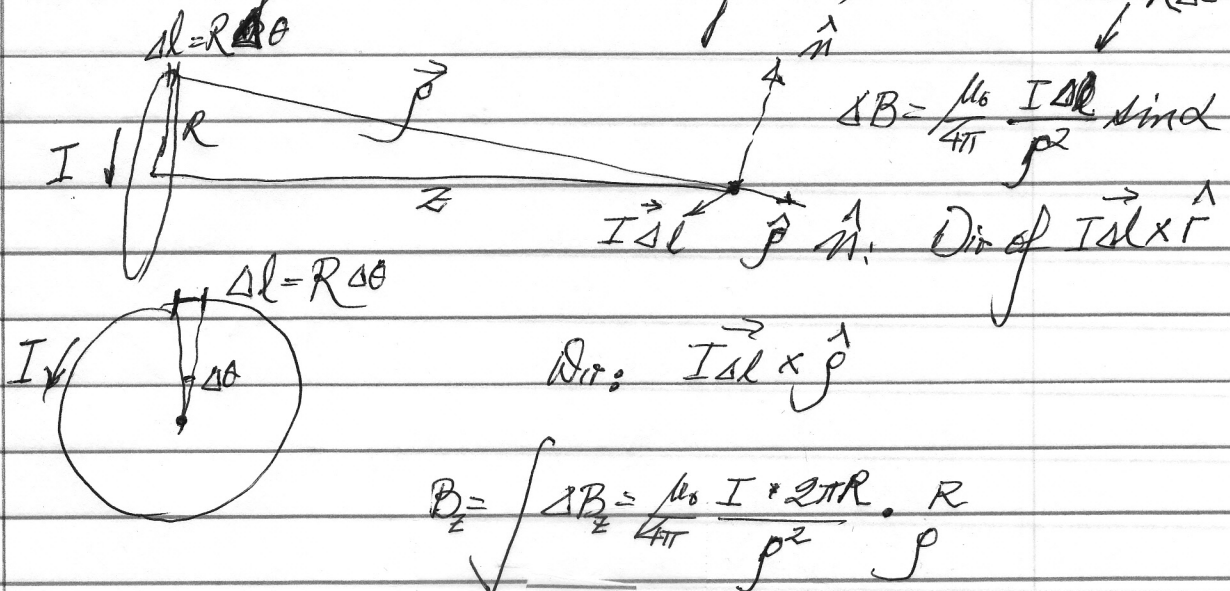 Δl=RΔθ
n̂
RΔ
ρ⃗
ΔB = μ₀/4π IΔl/ρ² sinα
R
I
z
IΔl⃗ ρ̂ n̂: Dir of IΔl⃗ × r̂
Δl = RΔθ
I
Δθ
Dir: IΔl⃗ × ρ̂
B_z = ∫ ΔB_z = μ₀/4π I · 2πR/ρ² · R/ρ